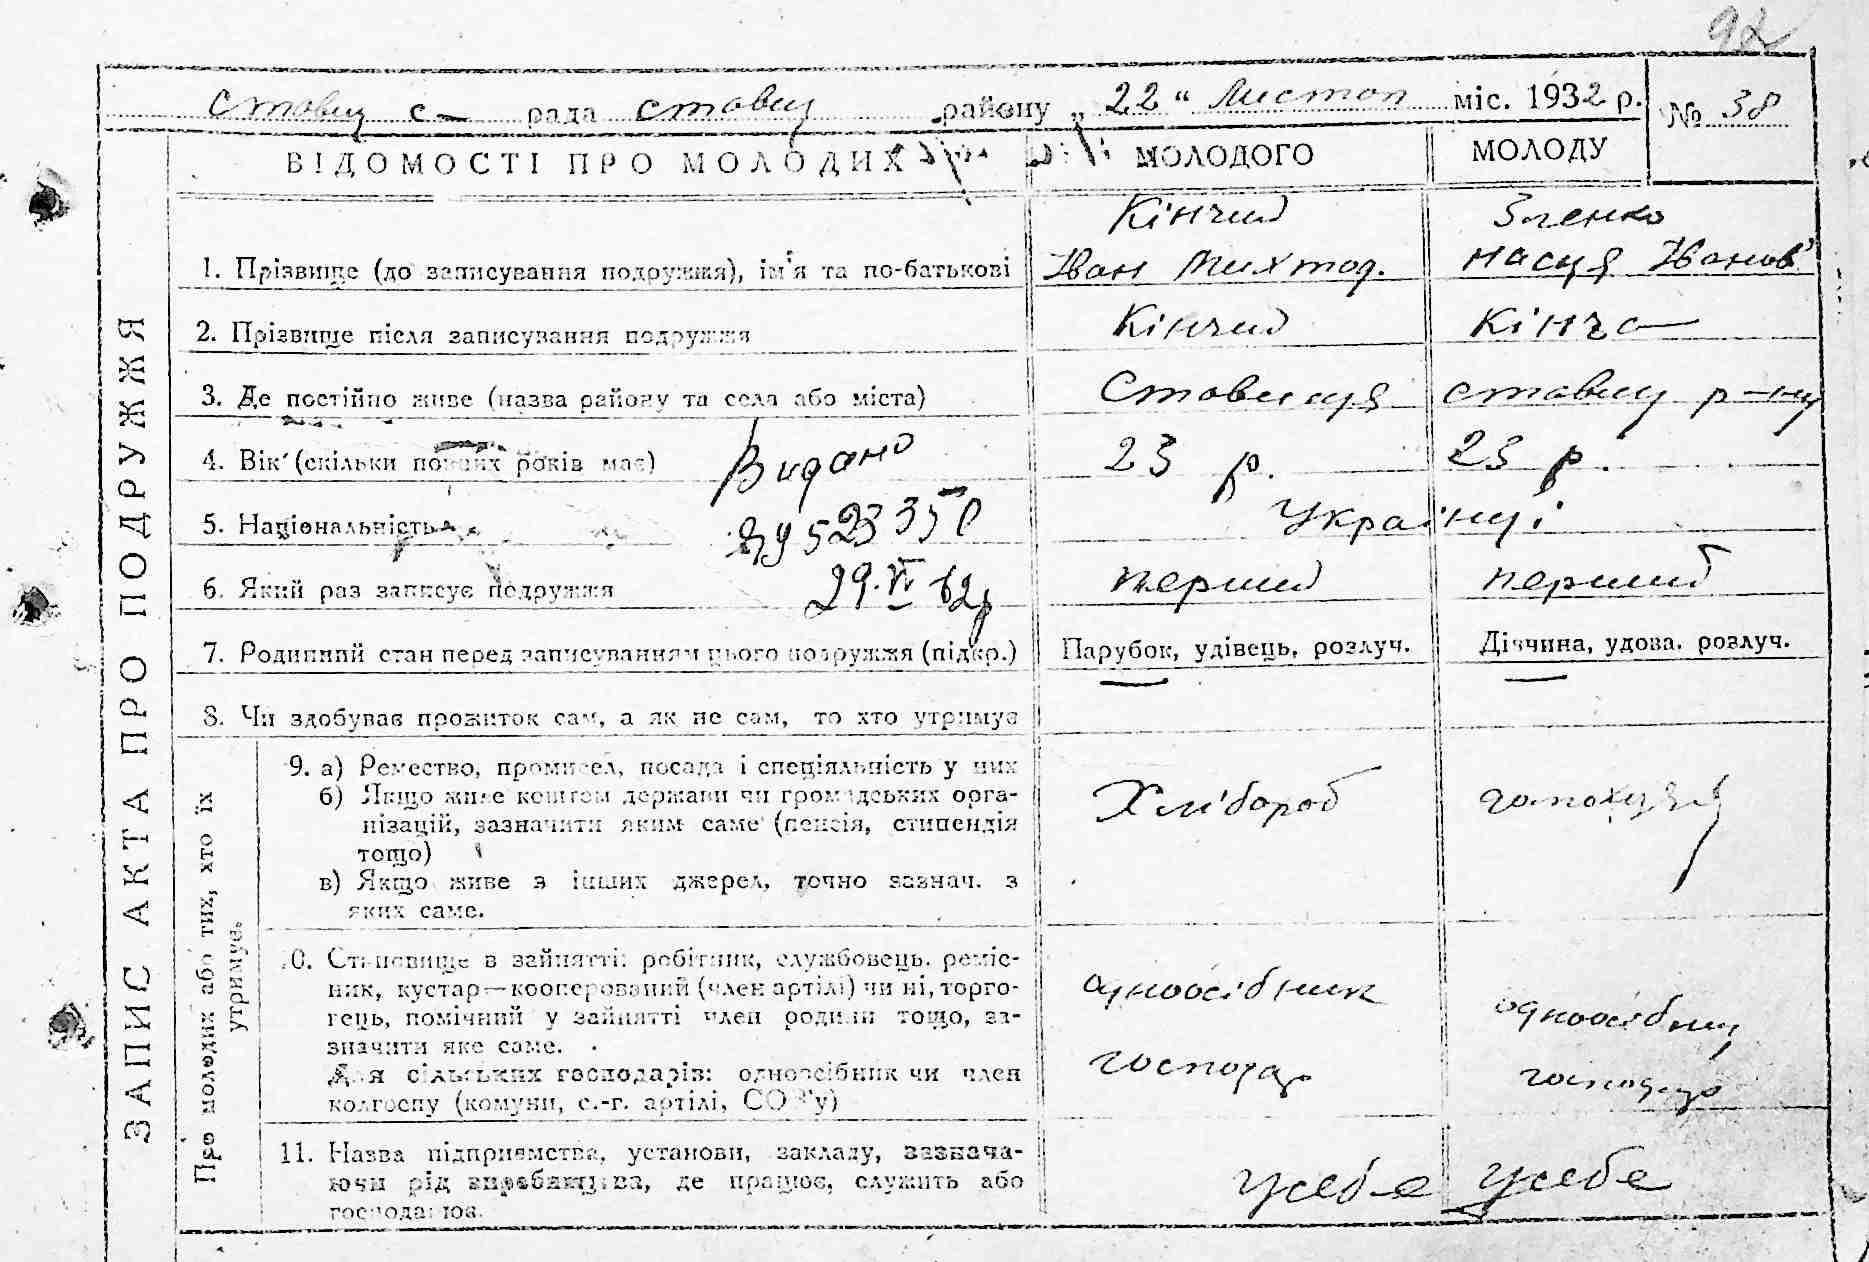 92
Ставищ с– рада Ставищ району „22“ Листоп міс. 1932 р. № 38
ВІДОМОСТІ ПРО МОЛОДИХ МОЛОДОГО МОЛОДУ
ЗАПИС АКТА ПРО ПОДРУЖЖЯ
Кінчий Зленко
1. Прізвище (до записування подружжя), ім'я та по-батькові Іван Настя Іванов'
2. Прізвище після записування подружжя Кінчий Кінча
3. Де постійно живе (назва району та села або міста) Ставища Ставищ р-ну
4. Вік (скільки повних років має) Видано 23 р. 23 р.
5. Національність Українці
6. Який раз записує подружжя 29.VI 62р перший перший
7. Родинний стан перед записуванням цього подружжя (підкр.) Парубок, удівець, розлуч. Дівчина, удова, розлуч.
8. Чи здобуває прожиток сам, а як не сам, то хто утримує
Про молодих або тих, хто їх утримує.
9. а) Ремество, промисел, посада і спеціяльність у них
б) Якщо живе коштом держави чи громадських орга-
нізацій, зазначити яким саме (пенсія, стипендія
тощо)
Хлібороб
в) Якщо живе з інших джерел, точно зазнач. з
яких саме.
10. Становище в зайнятті: робітник, службовець, реміс-
ник, кустар—кооперований (член артілі) чи ні, торго-
вець, помічний у зайнятті член родини тощо, за-
значити яке саме.
Для сільських господарів: одноосібник чи член
колгоспу (комуни, с.-г. артілі, СОЗ'у)
одноосібник одноосібни
господар господар
11. Назва підприємства, установи, закладу, зазнача-
ючи рід виробництва, де працює, служить або
господарює.
у себе у себе